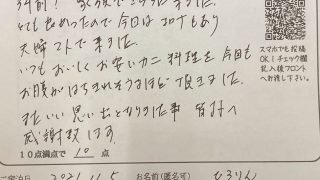 とても良かったので今日はコロナもあり
夫婦二人で来ました。
いつもおいしくお安いカニ料理を今回も
お腹がはちきれそうなほど頂きました。
またいい思い出となりました事 皆様へ
感謝致します。
10点満点で 10 点
スマホでも投稿
OK!チェック欄
記入後フロント
へお渡し下さい。
ご宿泊日 2021.11.5 お名前(匿名可) ひろりん